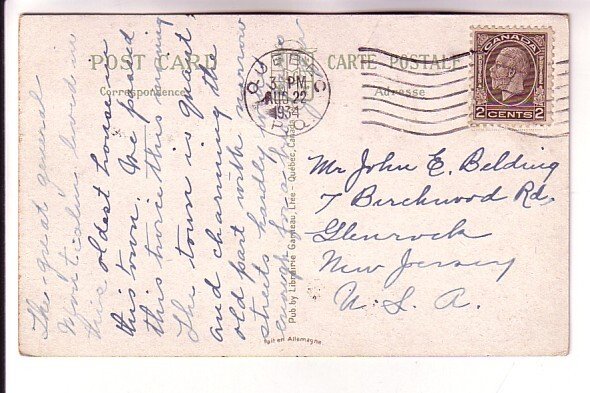 POST CARD
CARTE POSTALE
Correspondence
Adresse
QUEBEC
3 PM
AUG 22
1934
P.Q.
CANADA
2 CENTS 2
The great general
Montcalm lived in
this oldest house in
this town. We passed
this twice this morning
The town is quaint
and charming the
old part with narrow
streets hardly
enough for a
Mr John E. Belding
7 Birchwood Rd,
Glenrock
New Jersey
U. S. A.
Pub by Librairie Garneau, Ltée - Québec, Canada
Fait en Allemagne.